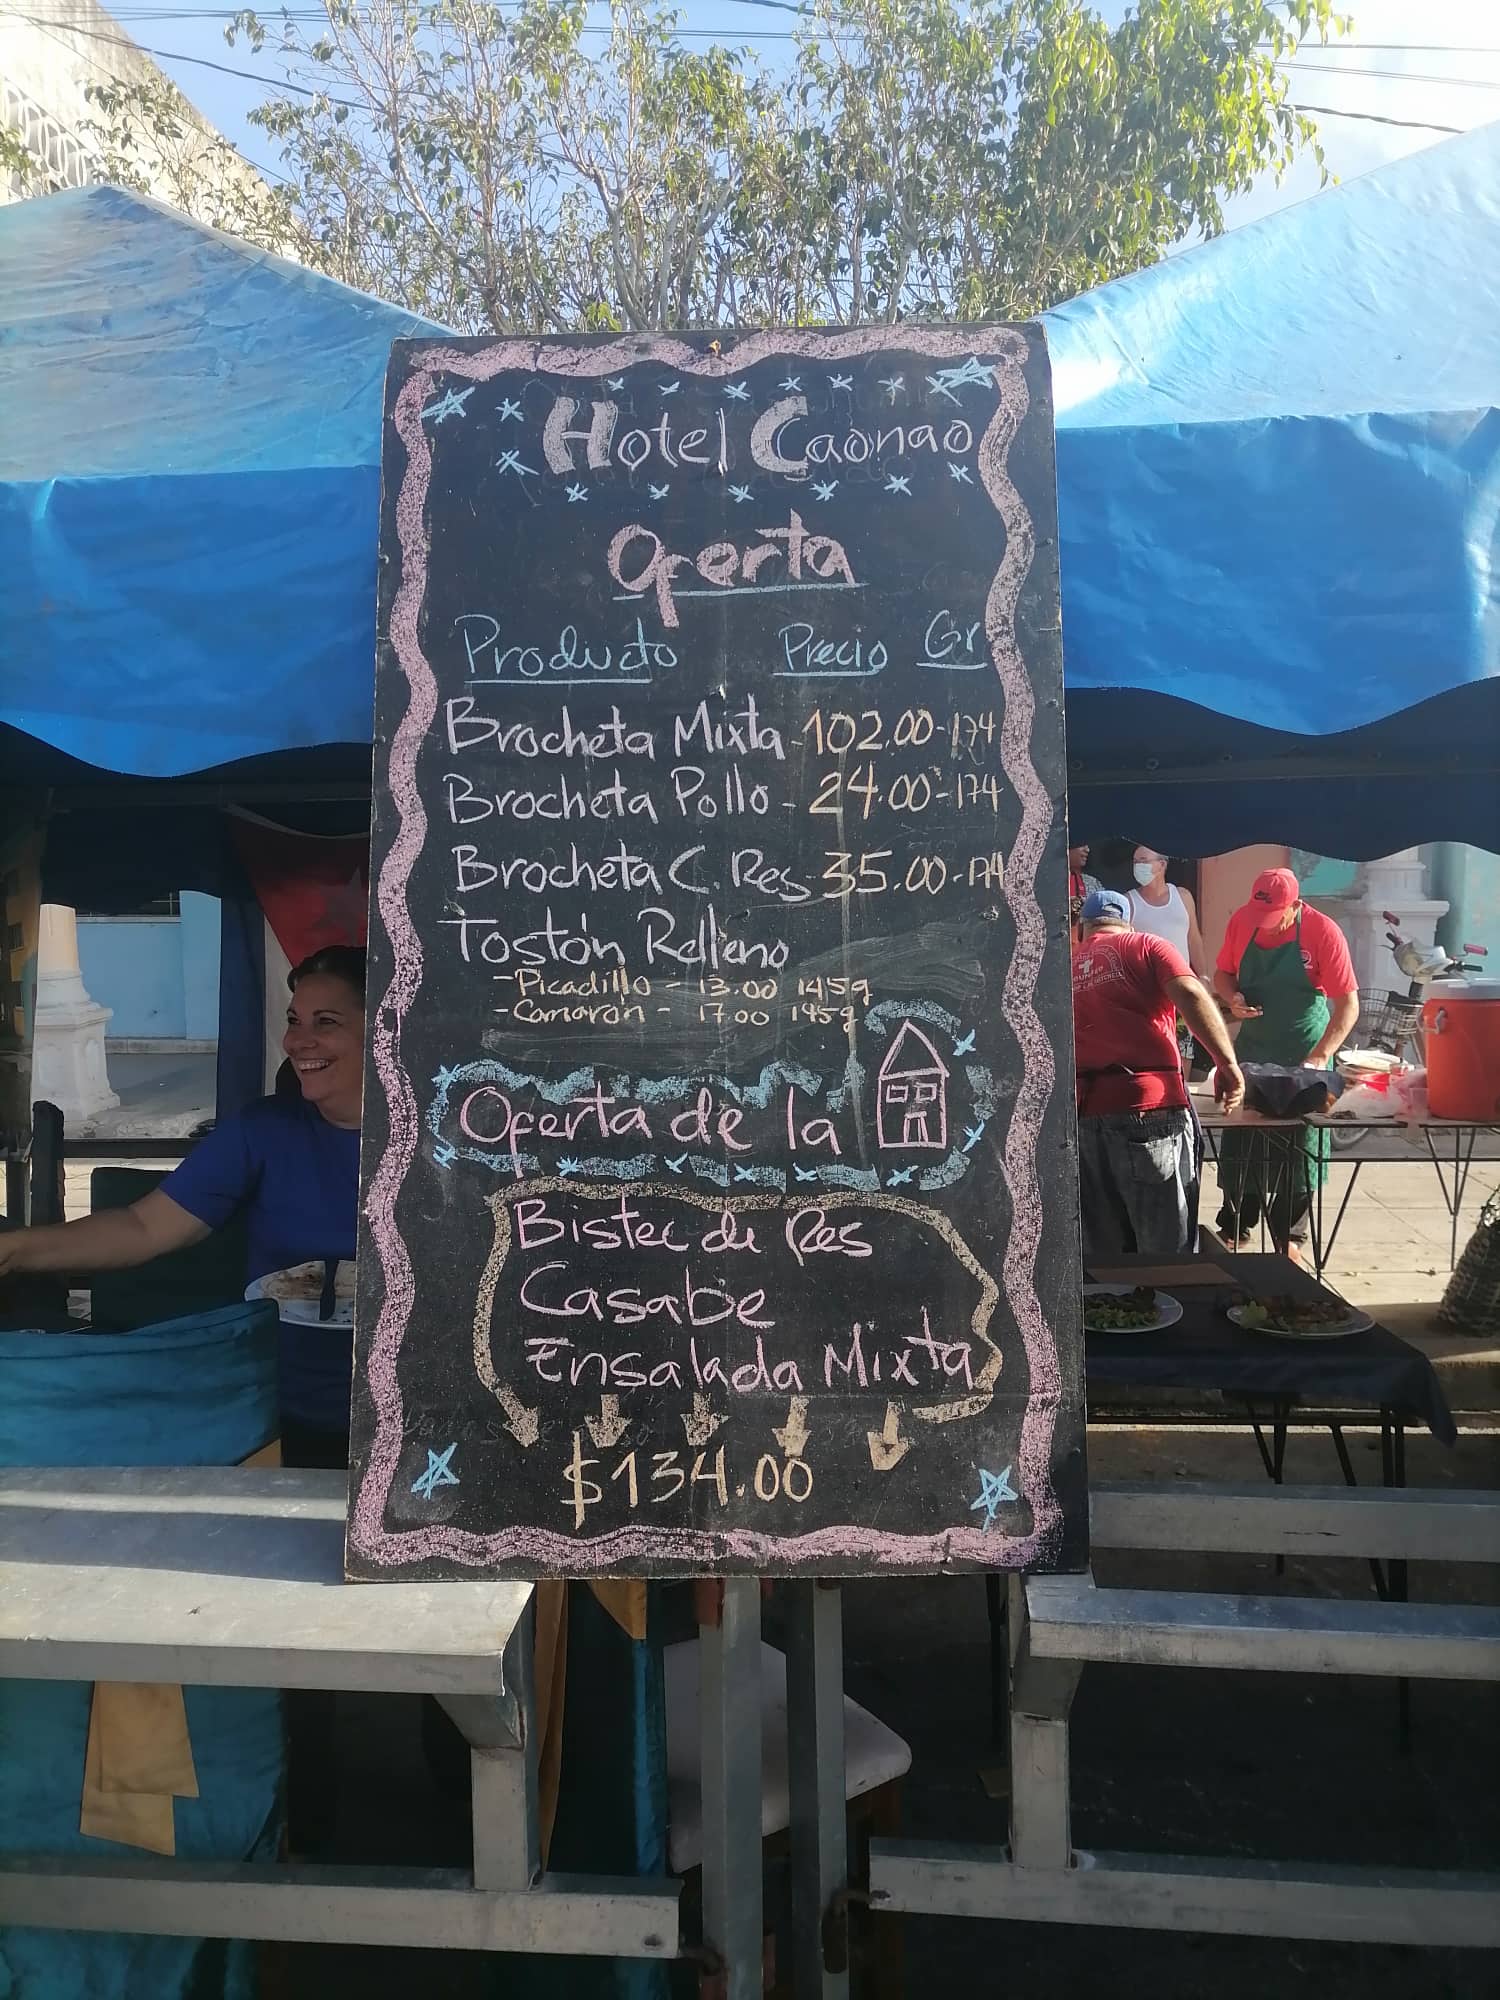 Hotel Caonao
Oferta
Producto Precio Gr
Brocheta Mixta - 102.00 - 174
Brocheta Pollo - 24.00 - 174
Brocheta C. Res - 35.00 - 174
Tostón Relleno
- Picadillo - 13.00 145g
- Camarón - 17.00 145g
Oferta de la
Bistec de Res
Casabe
Ensalada Mixta
$134.00